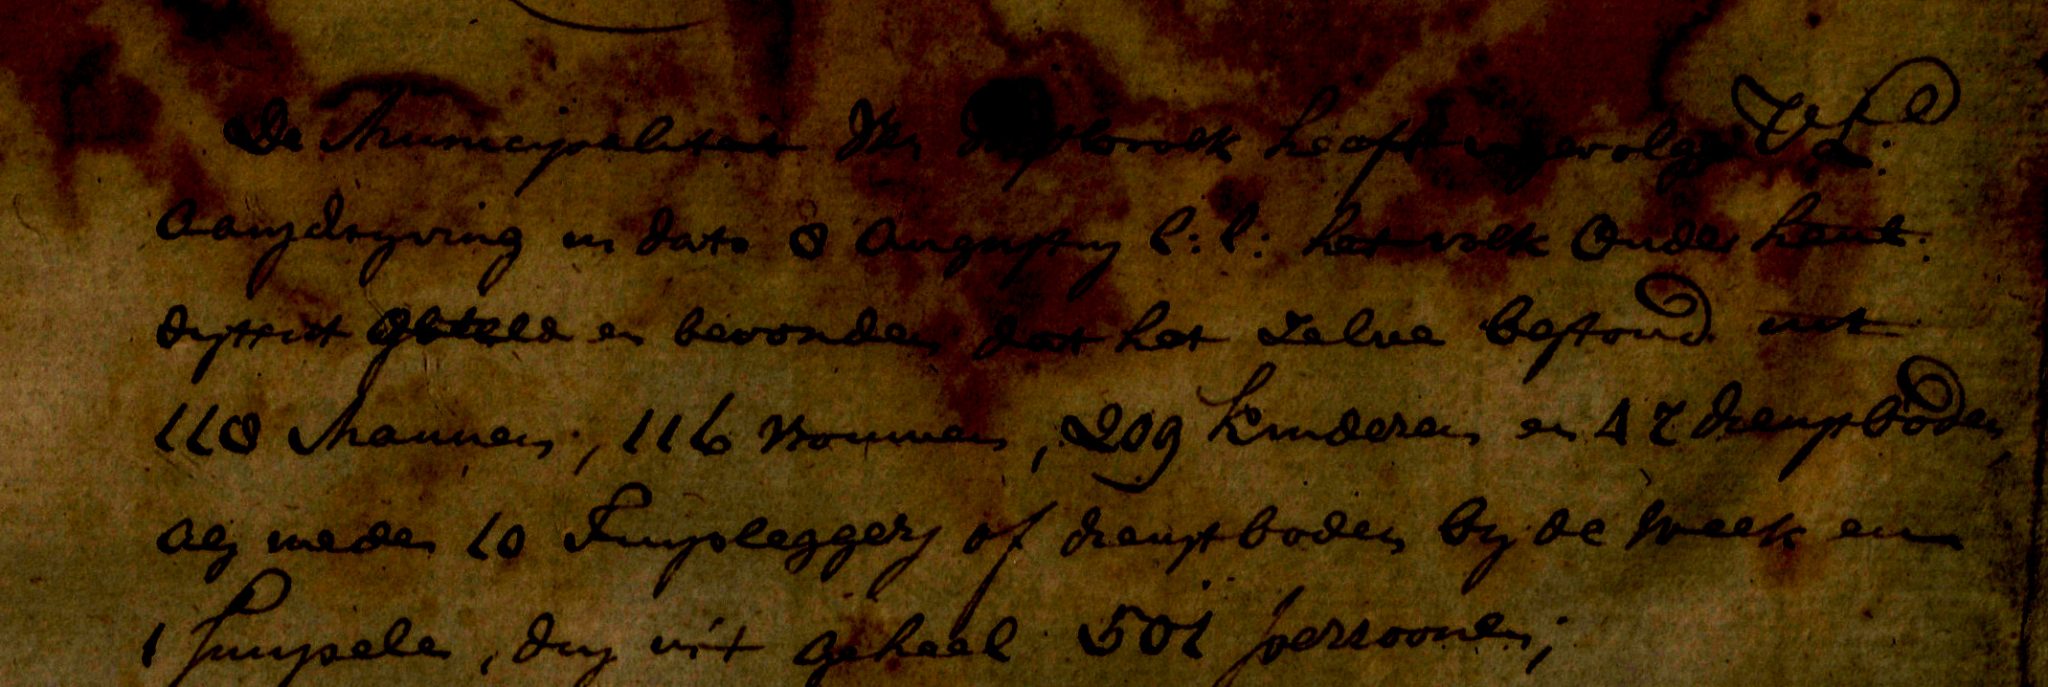 De Municipaliteit van heeft ingevolge Ul:
aanschryving in dato 8 Augusty l:l: het volk onder hent.
district geteld en bevonden dat het zelve bestond uit
118 Mannen, 116 Vrouwen, 209 kinderen en 47 dienstboden
als meden 10 Inupleggers of dienstboden by de week en
1 , dus uit geheel 501 persoonen;